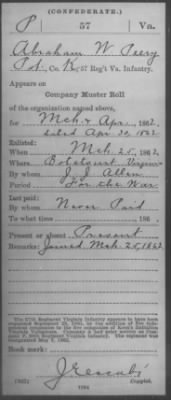 (CONFEDERATE.)
P 57 Va.
Abraham W Peery
Pvt, Co. K, 57 Reg't Va. Infantry.
Appears on
Company Muster Roll
of the organization named above,
for Mch & Apr, 1862.
dated Apr 30, 1862
Enlisted:
When Mch 25, 1862
Where Botetourt Virginia
By whom J. J. Allen
Period For the War
Last paid:
By whom Never Paid
To what time , 186 .
Present or absent Present
Remarks: Joined Mch. 25, 1862
The 57th Regiment Virginia Infantry
Book mark:
Copyist.